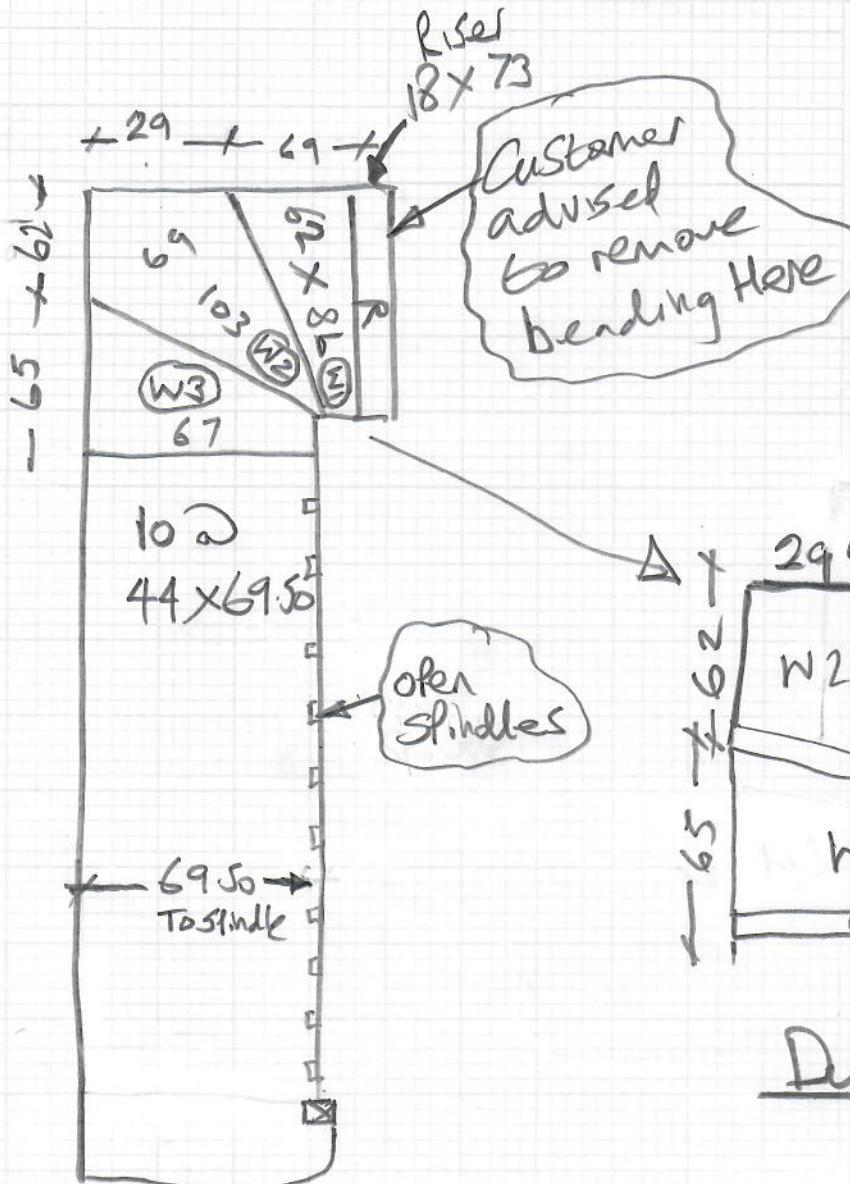 Riser
18 X 73
29
69
Customer
advised
to remove
beading Here
62
69
103
W2
R
65
W3
67
10 @
44 X 69.50
open
spindles
69.50
To spindle
29
62
W2
65